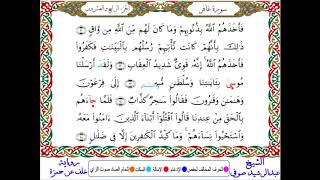 سورة غافر
الجزء الرابع والعشرون
فَأَخَذَهُمُ اللَّهُ بِذُنُوبِهِمْ وَمَا كَانَ لَهُم مِّنَ اللَّهِ مِن وَاقٍ
ذَٰلِكَ بِأَنَّهُمْ كَانَت تَّأْتِيهِمْ رُسُلُهُم بِالْبَيِّنَٰتِ فَكَفَرُوا
فَأَخَذَهُمُ اللَّهُ إِنَّهُ قَوِيٌّ شَدِيدُ الْعِقَابِ وَلَقَدْ أَرْسَلْنَا
مُوسَىٰ بِـَٔايَٰتِنَا وَسُلْطَٰنٍ مُّبِينٍ إِلَىٰ فِرْعَوْنَ
وَهَٰمَٰنَ وَقَٰرُونَ فَقَالُوا سَٰحِرٌ كَذَّابٌ فَلَمَّا جَاءَهُم
بِالْحَقِّ مِنْ عِندِنَا قَالُوا اقْتُلُوا أَبْنَاءَ الَّذِينَ ءَامَنُوا مَعَهُ
وَاسْتَحْيُوا نِسَاءَهُمْ وَمَا كَيْدُ الْكَٰفِرِينَ إِلَّا فِي ضَلَٰلٍ
الشيخ
عبدالرشيد صوفي
رواية
خلف عن حمزة